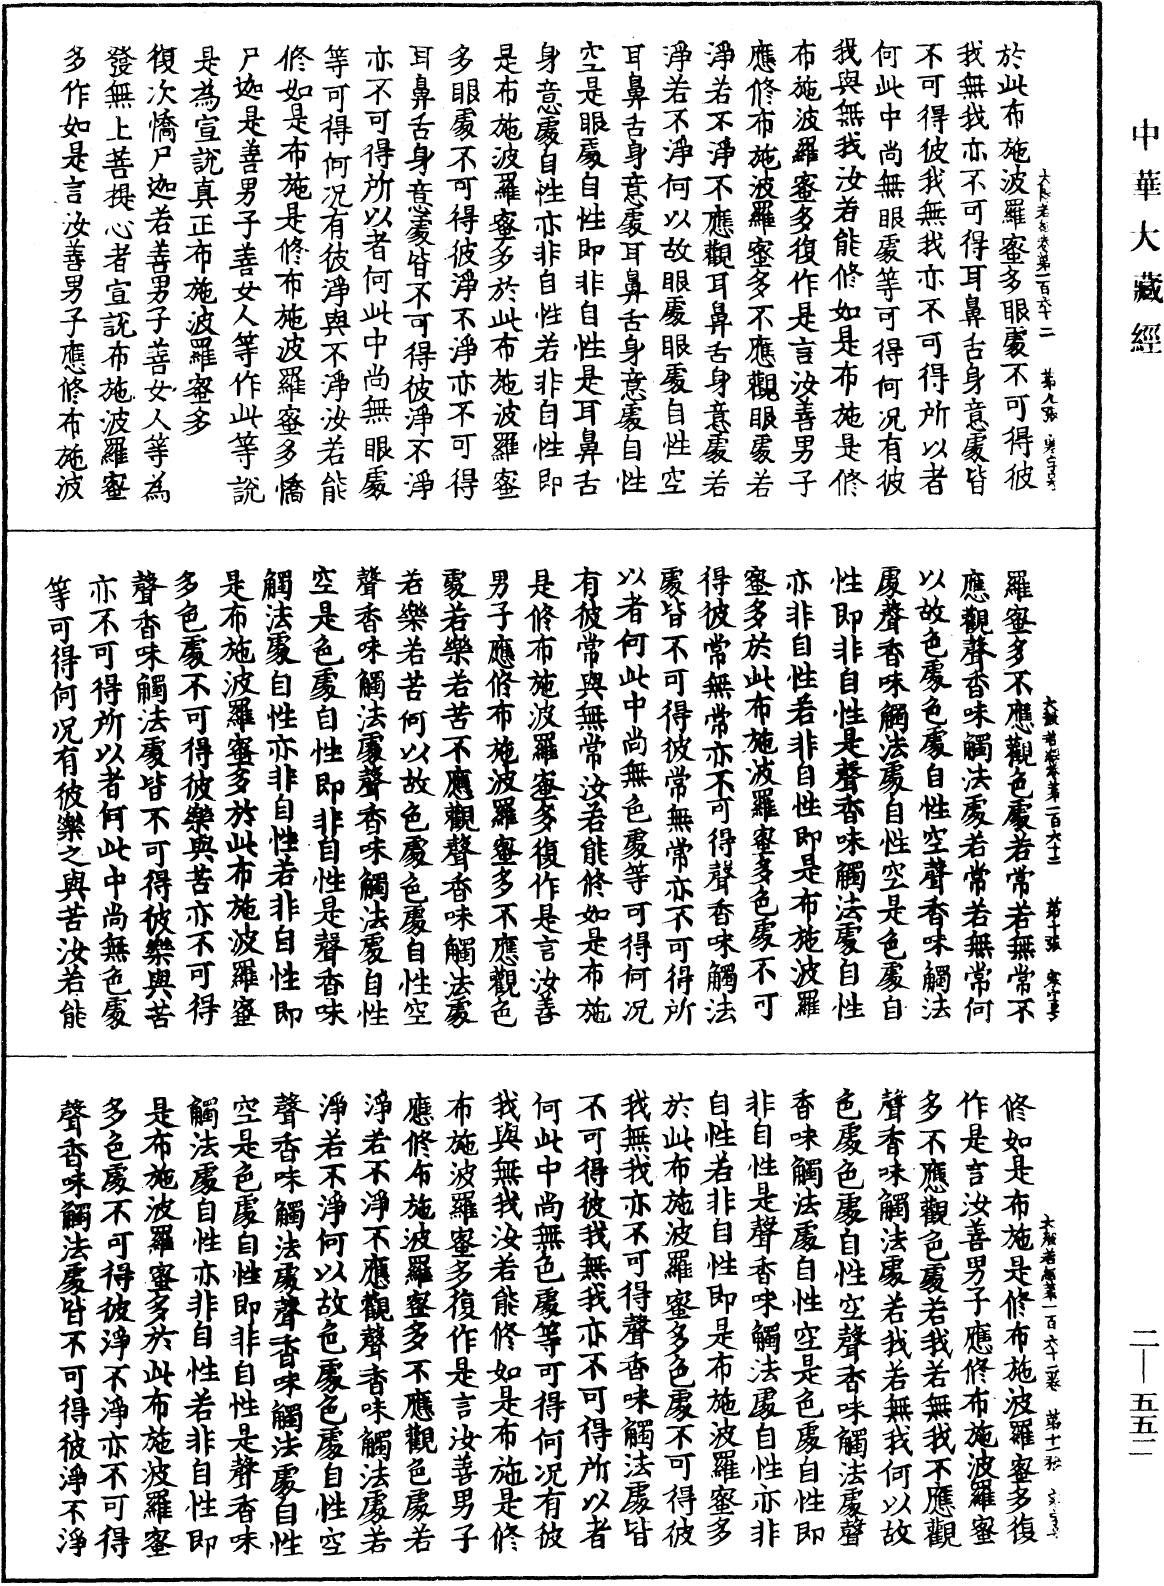 中華大藏經
於此布施波羅蜜多眼處不可得彼
我無我亦不可得耳鼻舌身意處皆
不可得彼我無我亦不可得所以者
何此中尚無眼處等可得何況有彼
我與無我汝若能修如是布施是修
布施波羅蜜多復作是言汝善男子
應修布施波羅蜜多不應觀眼處若
淨若不淨不應觀耳鼻舌身意處若
淨若不淨何以故眼處眼處自性空
耳鼻舌身意處耳鼻舌身意處自性
空是眼處自性即非自性是耳鼻舌
身意處自性亦非自性若非自性即
是布施波羅蜜多於此布施波羅蜜
多眼處不可得彼淨不淨亦不可得
耳鼻舌身意處皆不可得彼淨不淨
亦不可得所以者何此中尚無眼處
等可得何況有彼淨與不淨汝若能
修如是布施是修布施波羅蜜多憍
尸迦是善男子善女人等作此等說
是為宣說真正布施波羅蜜多
復次憍尸迦若善男子善女人等為
發無上菩提心者宣說布施波羅蜜
多作如是言汝善男子應修布施波
大般若經卷第一百六十二 第十張 寒字號
羅蜜多不應觀色處若常若無常不
應觀聲香味觸法處若常若無常何
以故色處色處自性空聲香味觸法
處聲香味觸法處自性空是色處自
性即非自性是聲香味觸法處自性
亦非自性若非自性即是布施波羅
蜜多於此布施波羅蜜多色處不可
得彼常無常亦不可得聲香味觸法
處皆不可得彼常無常亦不可得所
以者何此中尚無色處等可得何況
有彼常與無常汝若能修如是布施
是修布施波羅蜜多復作是言汝善
男子應修布施波羅蜜多不應觀色
處若樂若苦不應觀聲香味觸法處
若樂若苦何以故色處色處自性空
聲香味觸法處聲香味觸法處自性
空是色處自性即非自性是聲香味
觸法處自性亦非自性若非自性即
是布施波羅蜜多於此布施波羅蜜
多色處不可得彼樂與苦亦不可得
聲香味觸法處皆不可得彼樂與苦
亦不可得所以者何此中尚無色處
等可得何況有彼樂之與苦汝若能
修如是布施是修布施波羅蜜多復
作是言汝善男子應修布施波羅蜜
多不應觀色處若我若無我不應觀
聲香味觸法處若我若無我何以故
色處色處自性空聲香味觸法處聲
香味觸法處自性空是色處自性即
非自性是聲香味觸法處自性亦非
自性若非自性即是布施波羅蜜多
於此布施波羅蜜多色處不可得彼
我無我亦不可得聲香味觸法處皆
不可得彼我無我亦不可得所以者
何此中尚無色處等可得何況有彼
我與無我汝若能修如是布施是修
布施波羅蜜多復作是言汝善男子
應修布施波羅蜜多不應觀色處若
淨若不淨不應觀聲香味觸法處若
淨若不淨何以故色處色處自性空
聲香味觸法處聲香味觸法處自性
空是色處自性即非自性是聲香味
觸法處自性亦非自性若非自性即
是布施波羅蜜多於此布施波羅蜜
多色處不可得彼淨不淨亦不可得
聲香味觸法處皆不可得彼淨不淨
二—五五二